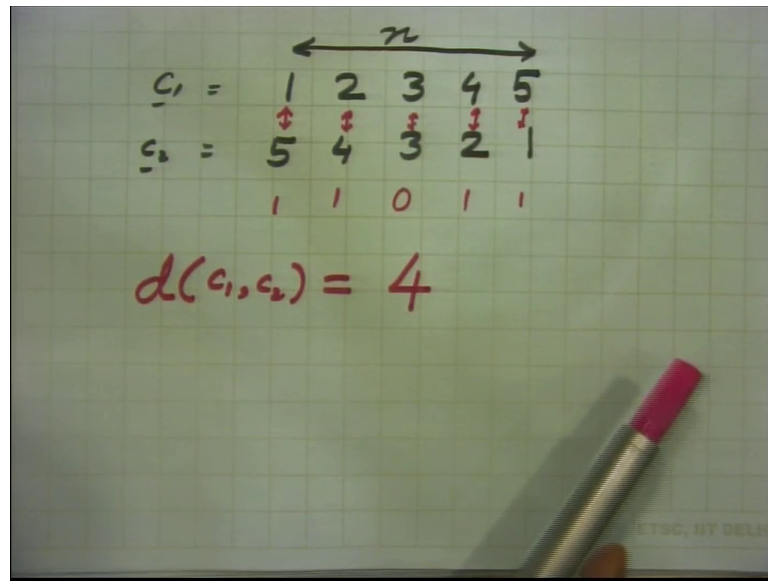 n
c₁ = 1 2 3 4 5
c₂ = 5 4 3 2 1
1 1 0 1 1
d(c₁,c₂) = 4
ETSC, IIT DELH